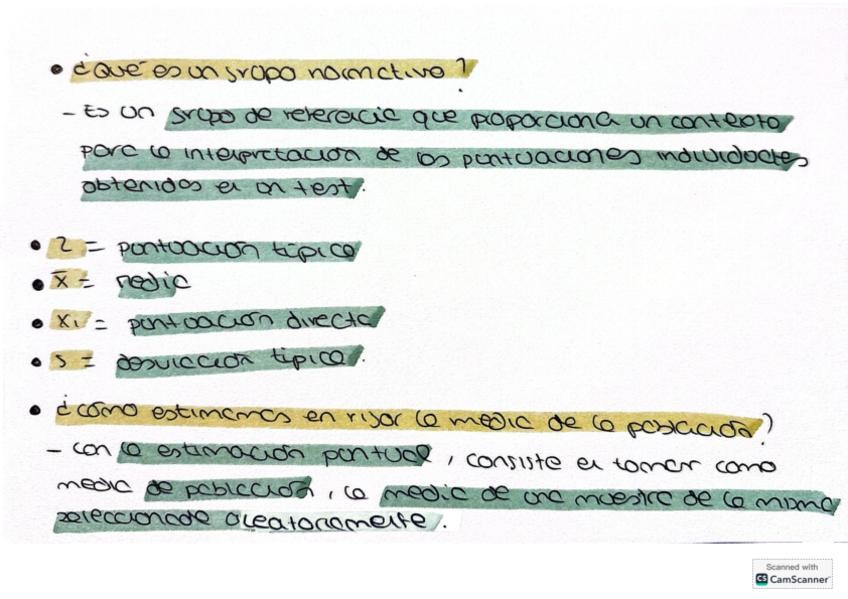 • ¿Qué es un grupo normativo?
- Es un grupo de referencia que proporciona un contexto
para la interpretación de las puntuaciones individuales
obtenidas en un test.
• Z = puntuación típica
• X̄ = media
• Xi = puntuación directa
• S = desviación típica.
• ¿cómo estimamos en rigor la media de la población?
- con la estimación puntual, consiste en tomar como
media de población, la media de una muestra de la misma
seleccionada aleatoriamente.
Scanned with
CS CamScanner